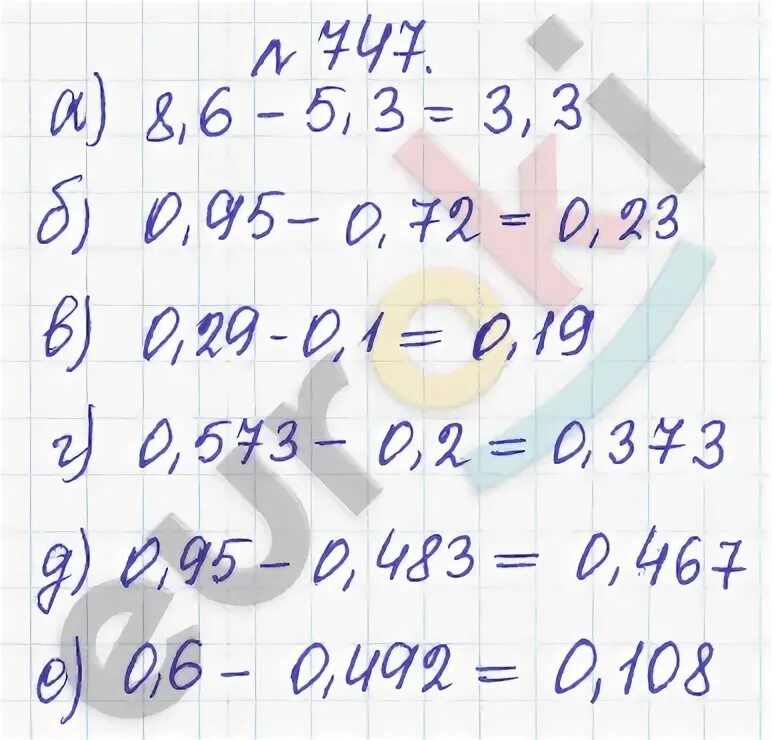 № 747.
а) 8,6 - 5,3 = 3,3
б) 0,95 - 0,72 = 0,23
в) 0,29 - 0,1 = 0,19
г) 0,573 - 0,2 = 0,373
д) 0,95 - 0,483 = 0,467
е) 0,6 - 0,492 = 0,108
euroki